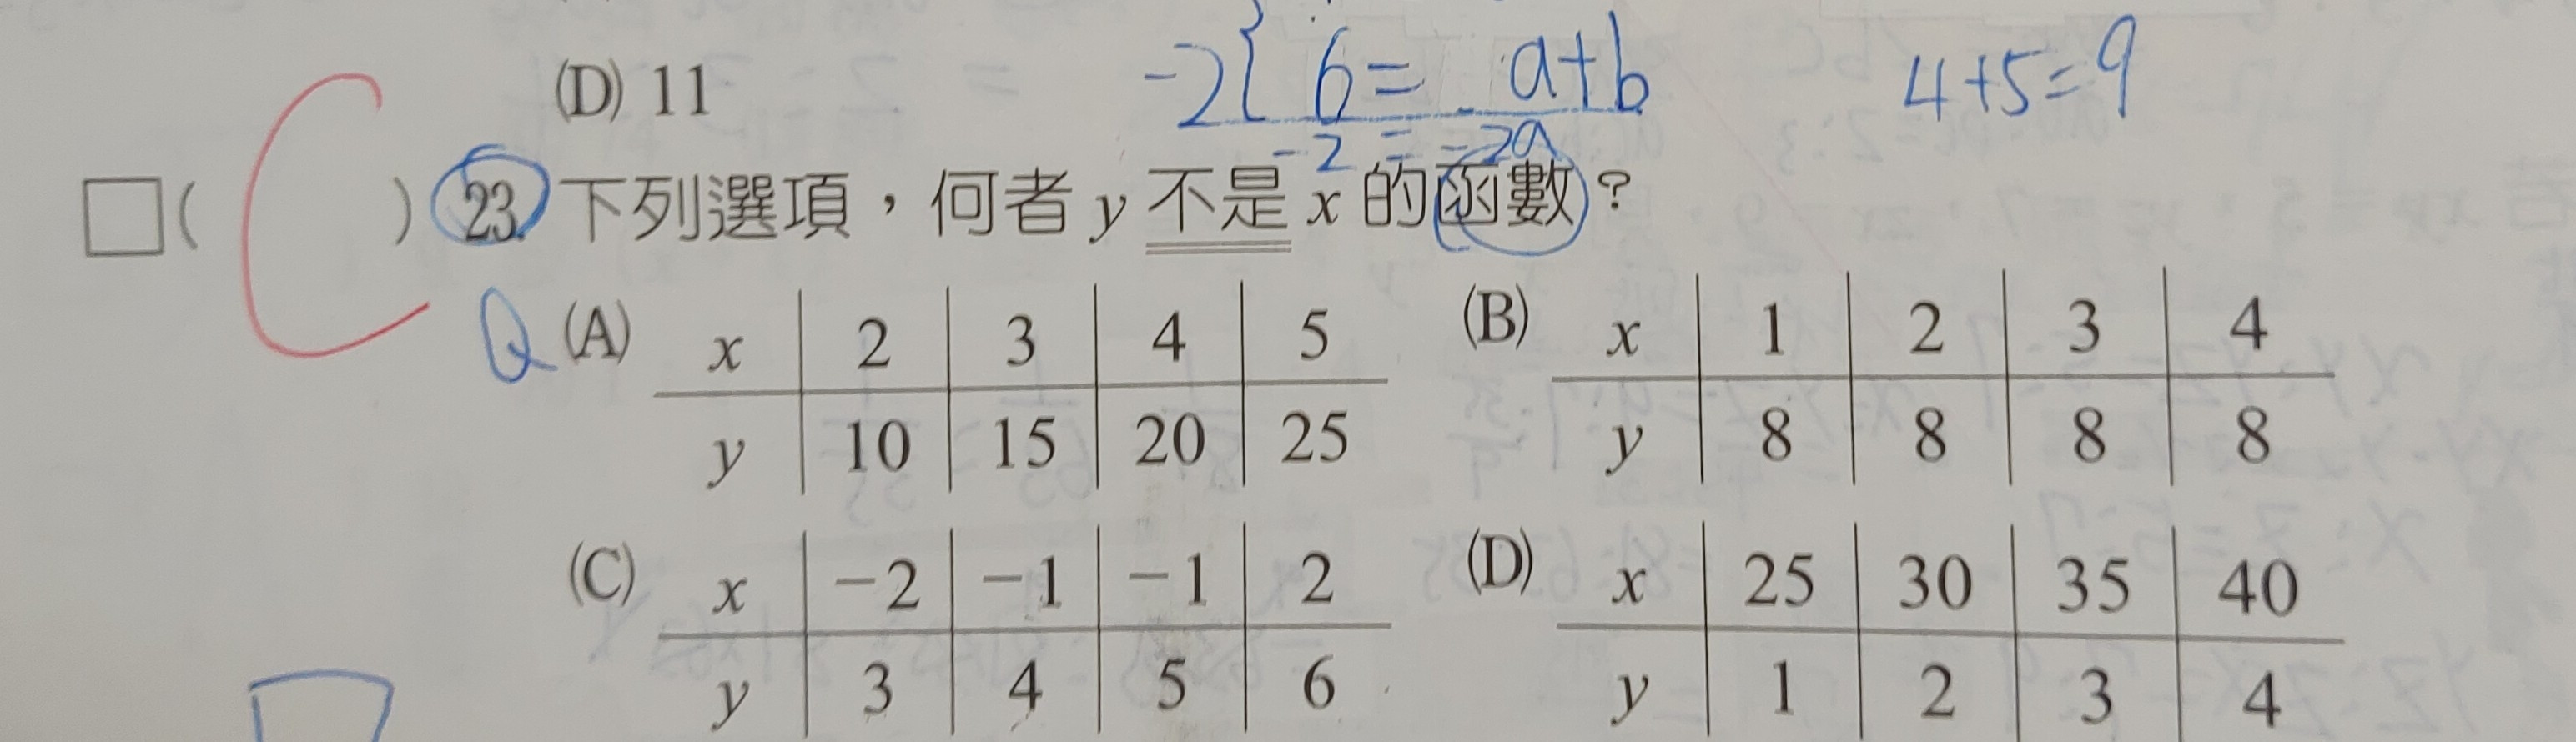 (D) 11
-2{ 6= a+b
4+5=9
-2 = -2a
□( C ) 23. 下列選項，何者 y 不是 x 的函數？
Q (A) x 2 3 4 5
y 10 15 20 25
(B) x 1 2 3 4
y 8 8 8 8
(C) x −2 −1 −1 2
y 3 4 5 6
(D) x 25 30 35 40
y 1 2 3 4